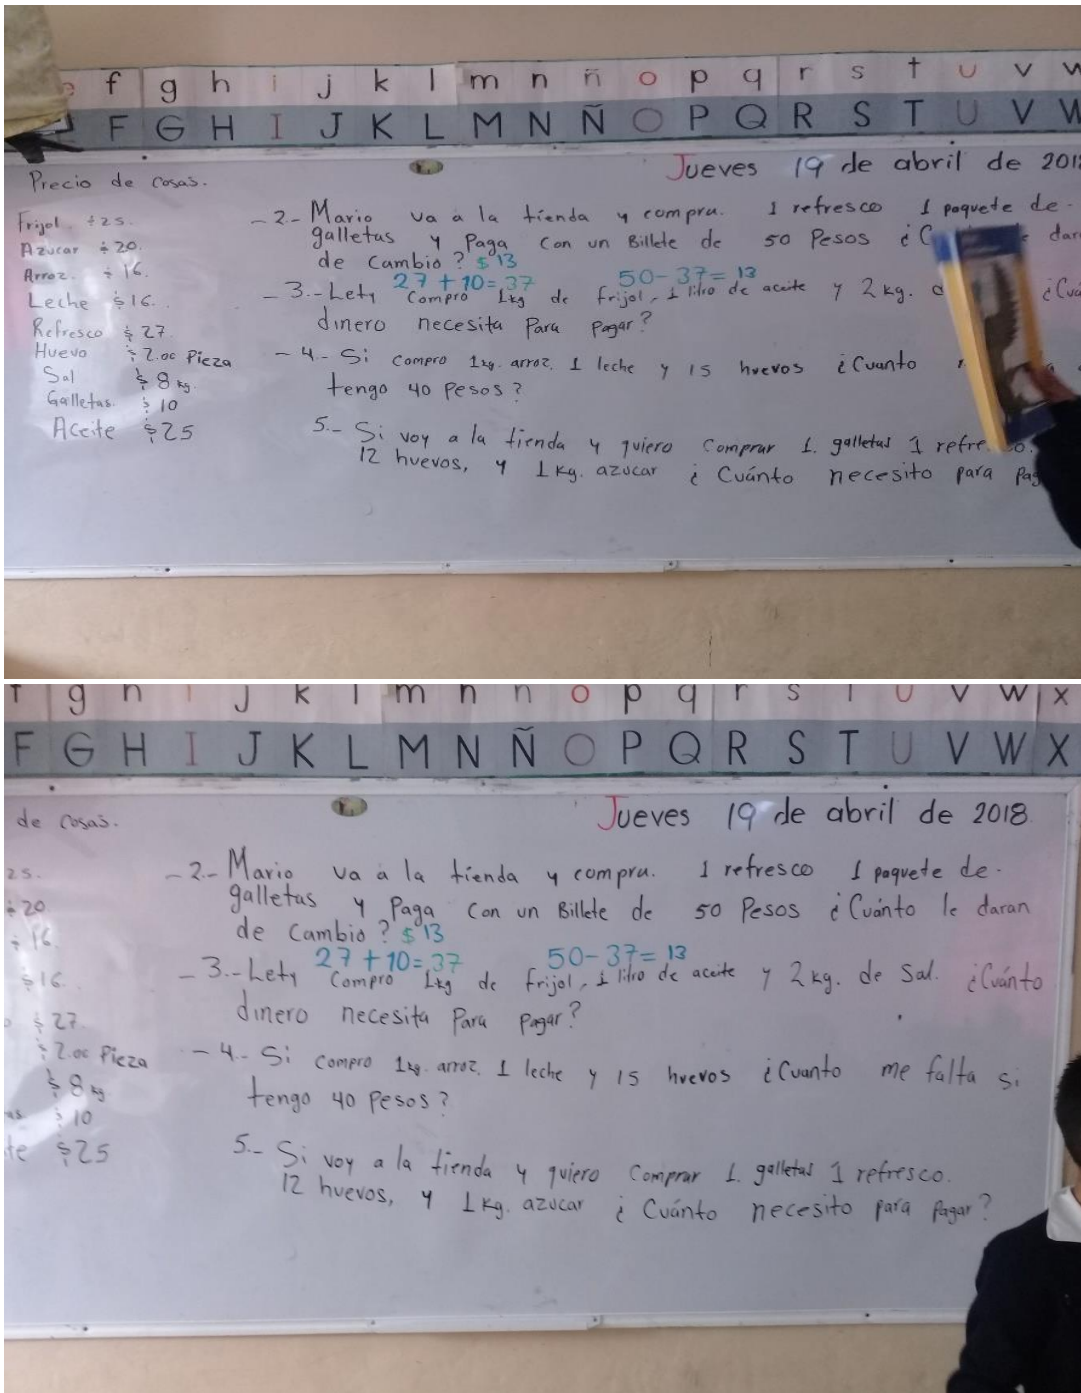 f g h i j k l m n ñ o p q r s t u v w
F G H I J K L M N Ñ O P Q R S T U V W
Jueves 19 de abril de 201
Precio de cosas.
Frijol $25.
Azucar $20.
Arroz. $16.
Leche $16.
Refresco $27.
Huevo $2.00 Pieza
Sal $8 kg.
Galletas. $10
Aceite $25
-2.- Mario va a la tienda y compra. 1 refresco 1 paquete de.
galletas y Paga con un Billete de 50 Pesos ¿C dar
de cambio? $13
27+10=37 50-37=13
-3.- Lety compro 1kg de frijol, 1 litro de aceite y 2kg. ¿Cuá
dinero necesita Para pagar?
-4.- Si compro 1kg. arroz. 1 leche y 15 huevos ¿Cuanto
tengo 40 Pesos?
5.- Si voy a la tienda y quiero comprar 1. galletas 1 refre co.
12 huevos, y 1 Kg. azucar ¿Cuánto necesito para pag
f g h i j k l m n ñ o p q r s t u v w x
F G H I J K L M N Ñ O P Q R S T U V W X
Jueves 19 de abril de 2018
de cosas.
25.
$20
$16.
$16.
$27.
$2.00 Pieza
$8 kg.
as. $10
te $25
-2.- Mario va a la tienda y compra. 1 refresco 1 paquete de.
galletas y Paga con un Billete de 50 Pesos ¿Cuánto le daran
de cambio? $13
27+10=37 50-37=13
-3.- Lety compro 1kg de frijol, 1 litro de aceite y 2kg. de sal. ¿Cuánto
dinero necesita Para pagar?
-4.- Si compro 1kg. arroz. 1 leche y 15 huevos ¿Cuanto me falta si
tengo 40 Pesos?
5.- Si voy a la tienda y quiero comprar 1. galletas 1 refresco.
12 huevos, y 1 Kg. azucar ¿Cuánto necesito para pagar?